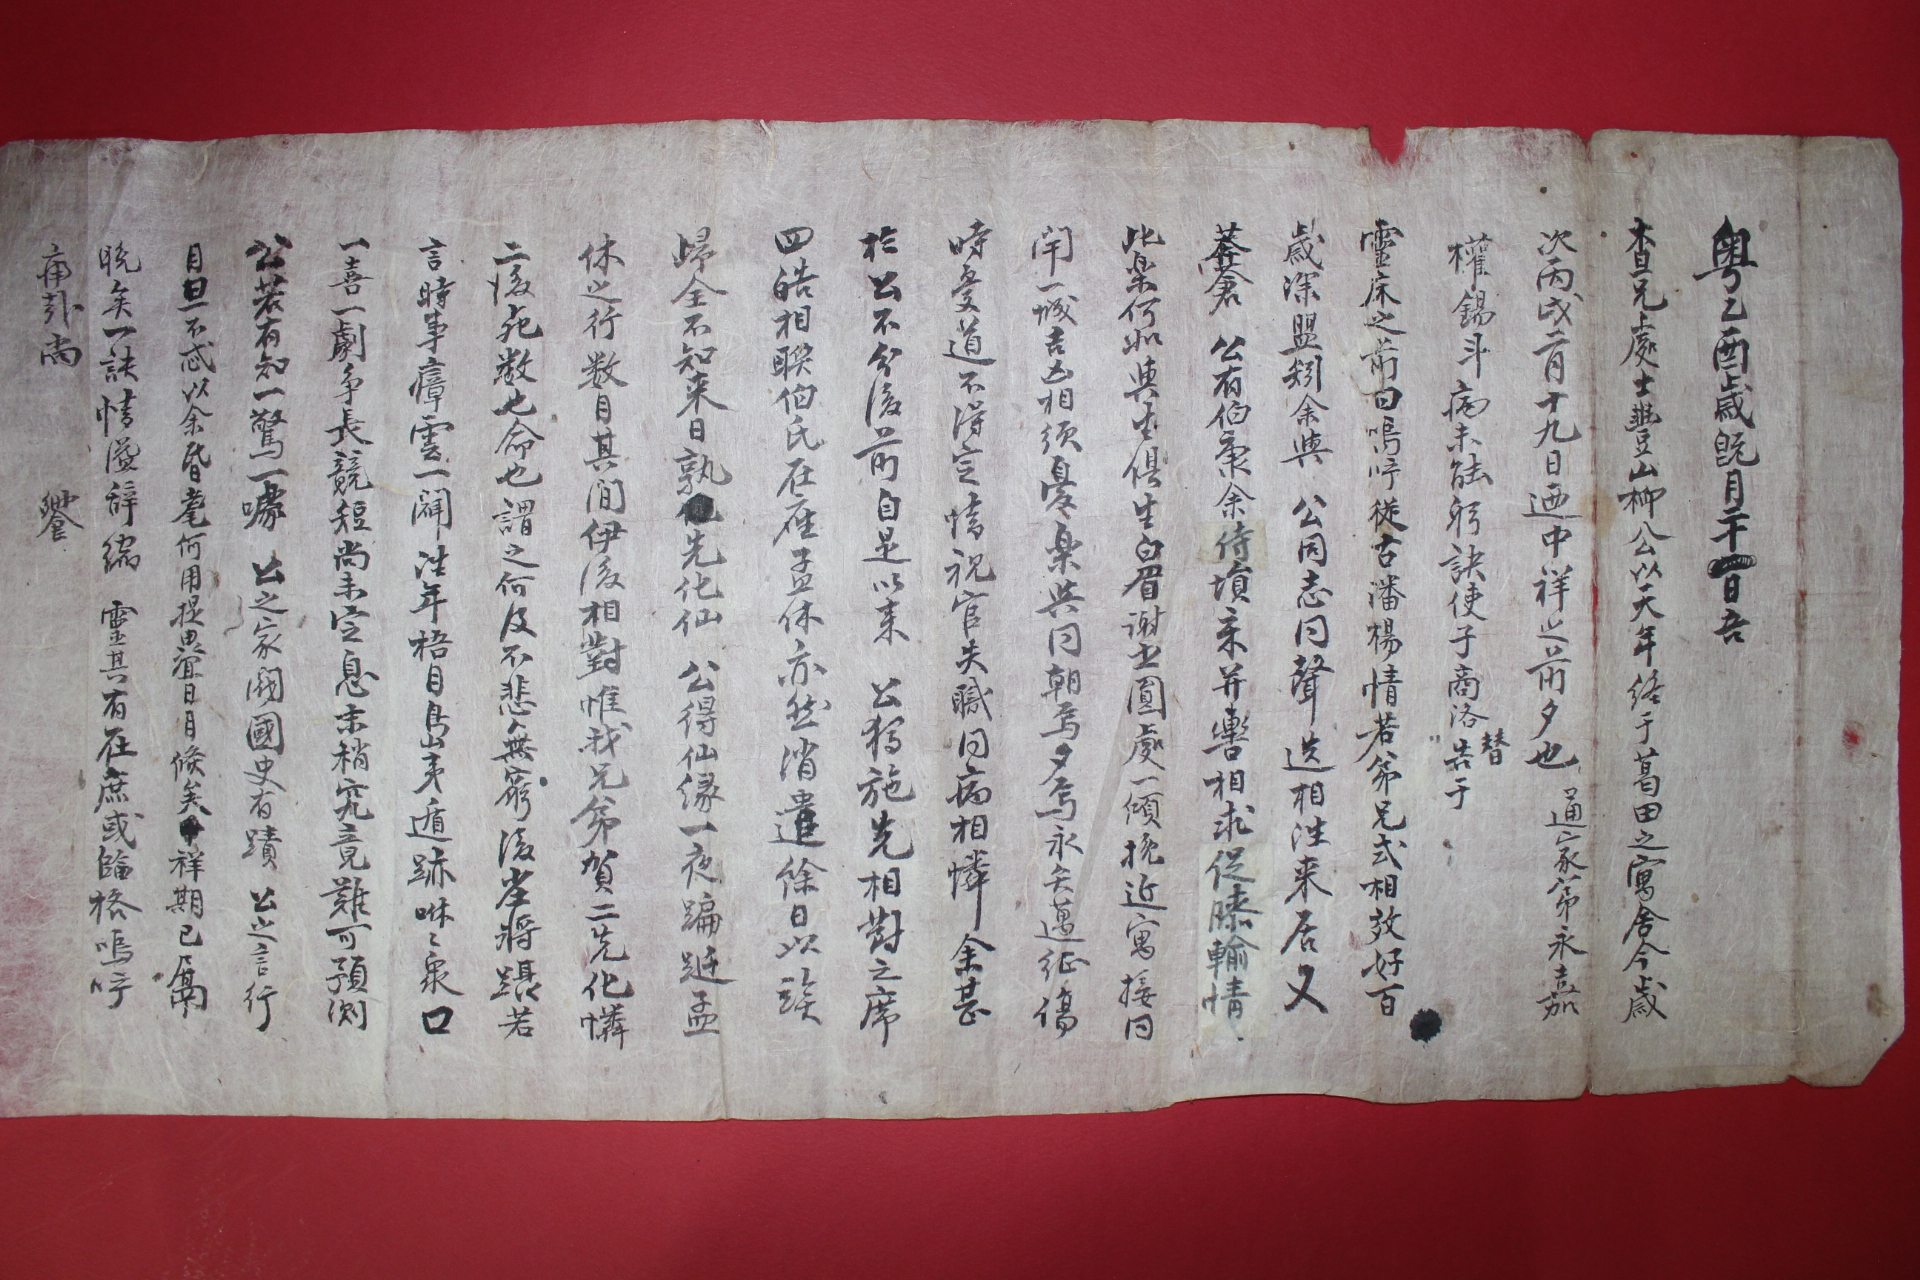 粤乙酉歲旣月二十一日吾
査兄處士豊山柳公以天年終于葛田之寓舍今歲
次丙戌二月十九日廼中祥之前夕也通家弟永嘉
權錫斗病未能躬訣使子商洛替告于
靈床之前曰嗚呼從古潘楊情若弟兄式相效好百
歲深盟矧余與公同志同聲迭相往来居又
葭蒼公有伯氣余侍塤末并轡相求促膝輸情
此樂何如與生俱生白眉谢世圓處一傾挽近寓接同
閈一城吉凶相須憂樂共同朝焉夕焉永矢邁征傷
時憂道不得定情祝官失職同病相憐余甚
於公不分後前自是以来公獨施先相對之席
四皓相聨伯氏在座孟休亦然消遣徐日以談
歸全不知来日孰也先化仙公得仙縁一夜蹁躚孟
休之行数月其間伊後相對惟我兄弟賀二先化憐
二後死数也命也謂之何及不悲無窮後坐將躡若
言時事瘴雲一闢往年格目島夷遁跡咻々衆口
一喜一劇争長競短尚未定息末稍究竟難可預測
公若有知一驚一噱公之家國國史有蹟公之言行
目旦不忒以余昏耄何用提思湌日月倏矣中祥期已屆
晩矣一訣情溢辞缩靈其有在庶或臨格嗚呼
痛卦尚饗